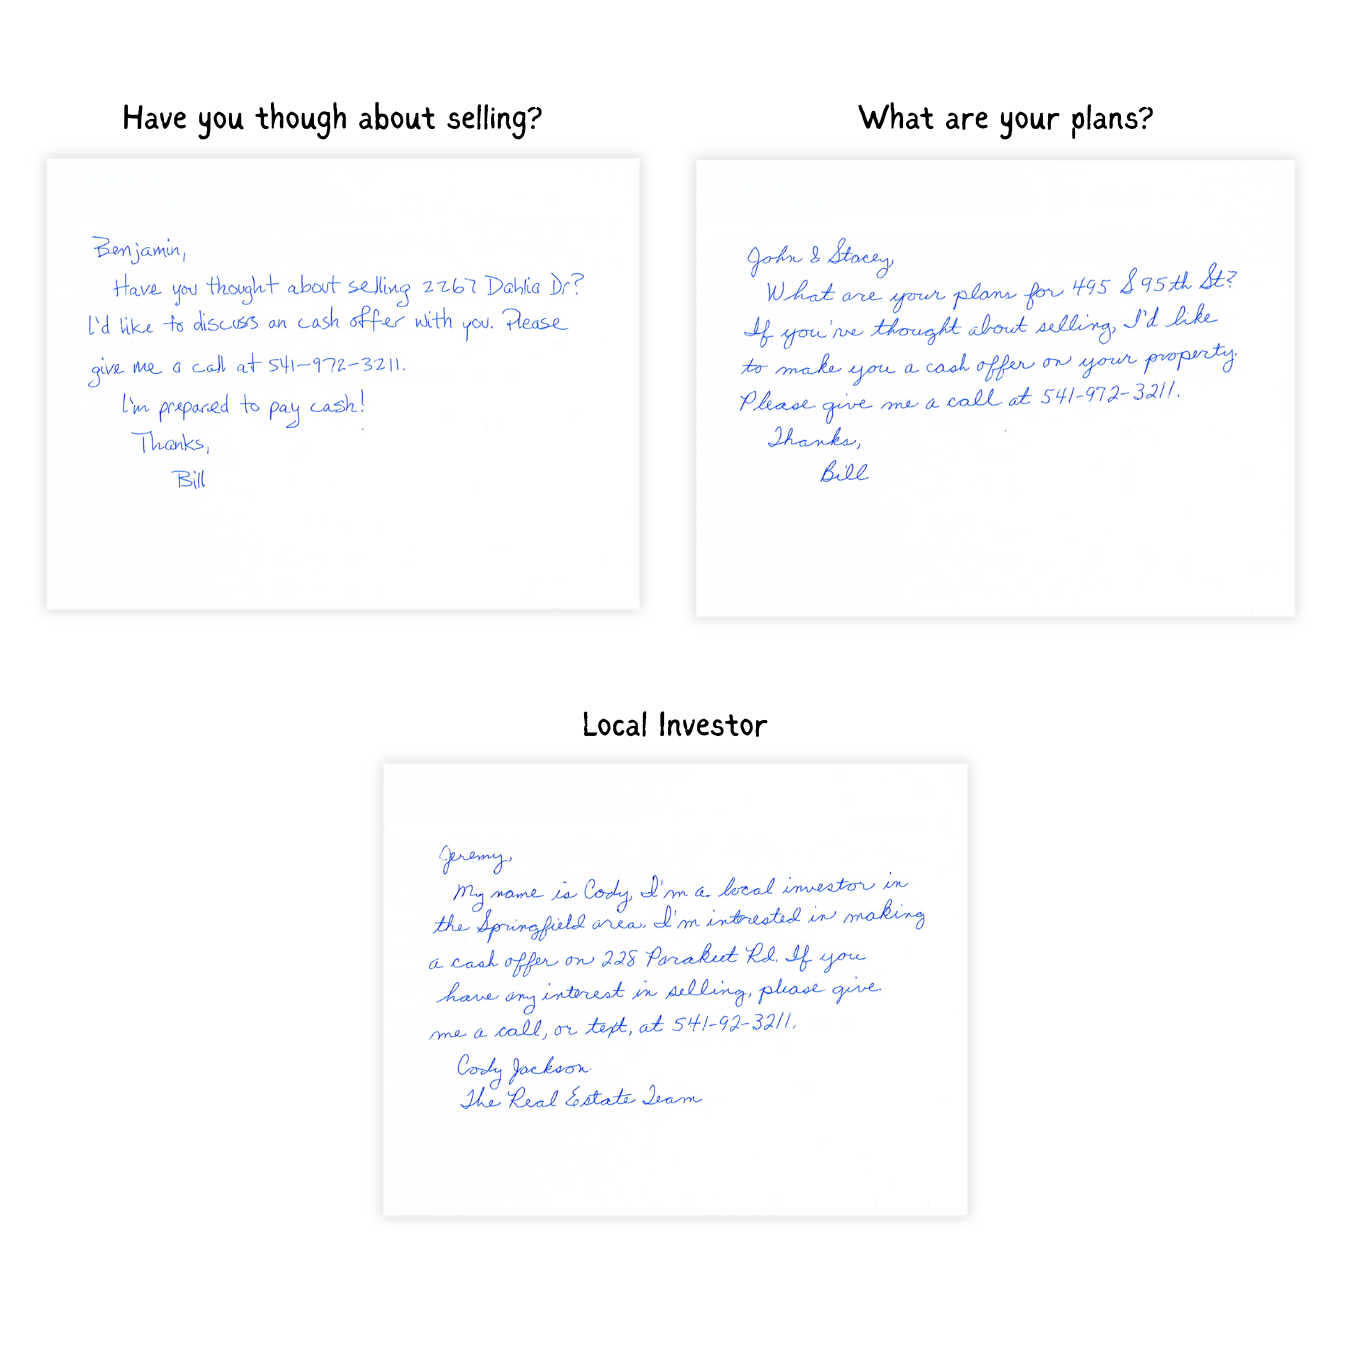 Have you though about selling?
Benjamin,
Have you thought about selling 2267 Dahlia Dr?
I'd like to discuss an cash offer with you. Please
give me a call at 541-972-3211.
I'm prepared to pay cash!
Thanks,
Bill
What are your plans?
John & Stacey,
What are your plans for 495 S 95th St?
If you've thought about selling, I'd like
to make you a cash offer on your property.
Please give me a call at 541-972-3211.
Thanks,
Bill
Local Investor
Jeremy,
My name is Cody, I'm a local investor in
the Springfield area. I'm interested in making
a cash offer on 228 Parakeet Rd. If you
have any interest in selling, please give
me a call, or text, at 541-92-3211.
Cody Jackson
The Real Estate Team